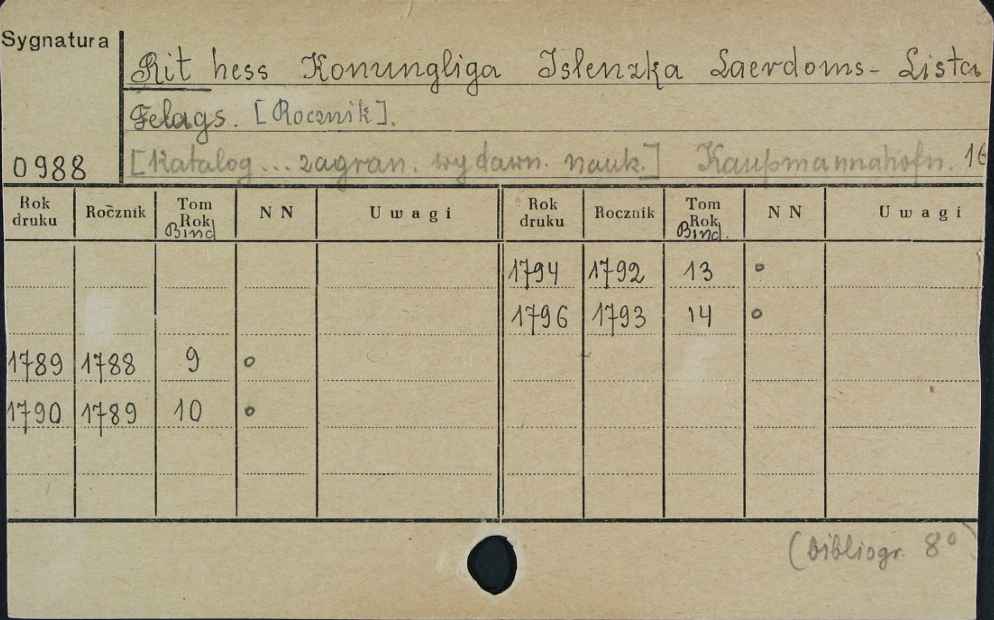 Sygnatura
Rit hess Konungliga Islenzka Laerdoms- Lista
Felags. [Rocznik].
0988 [Katalog... zagran. wydawn. nauk.] Kaupmannahofn. 16
Rok druku Rocznik Tom Rok Bind NN Uwagi Rok druku Rocznik Tom Rok Bind. NN Uwagi
1794 1792 13 o
1796 1793 14 o
1789 1788 9 o
1790 1789 10 o
(bibliogr. 8°